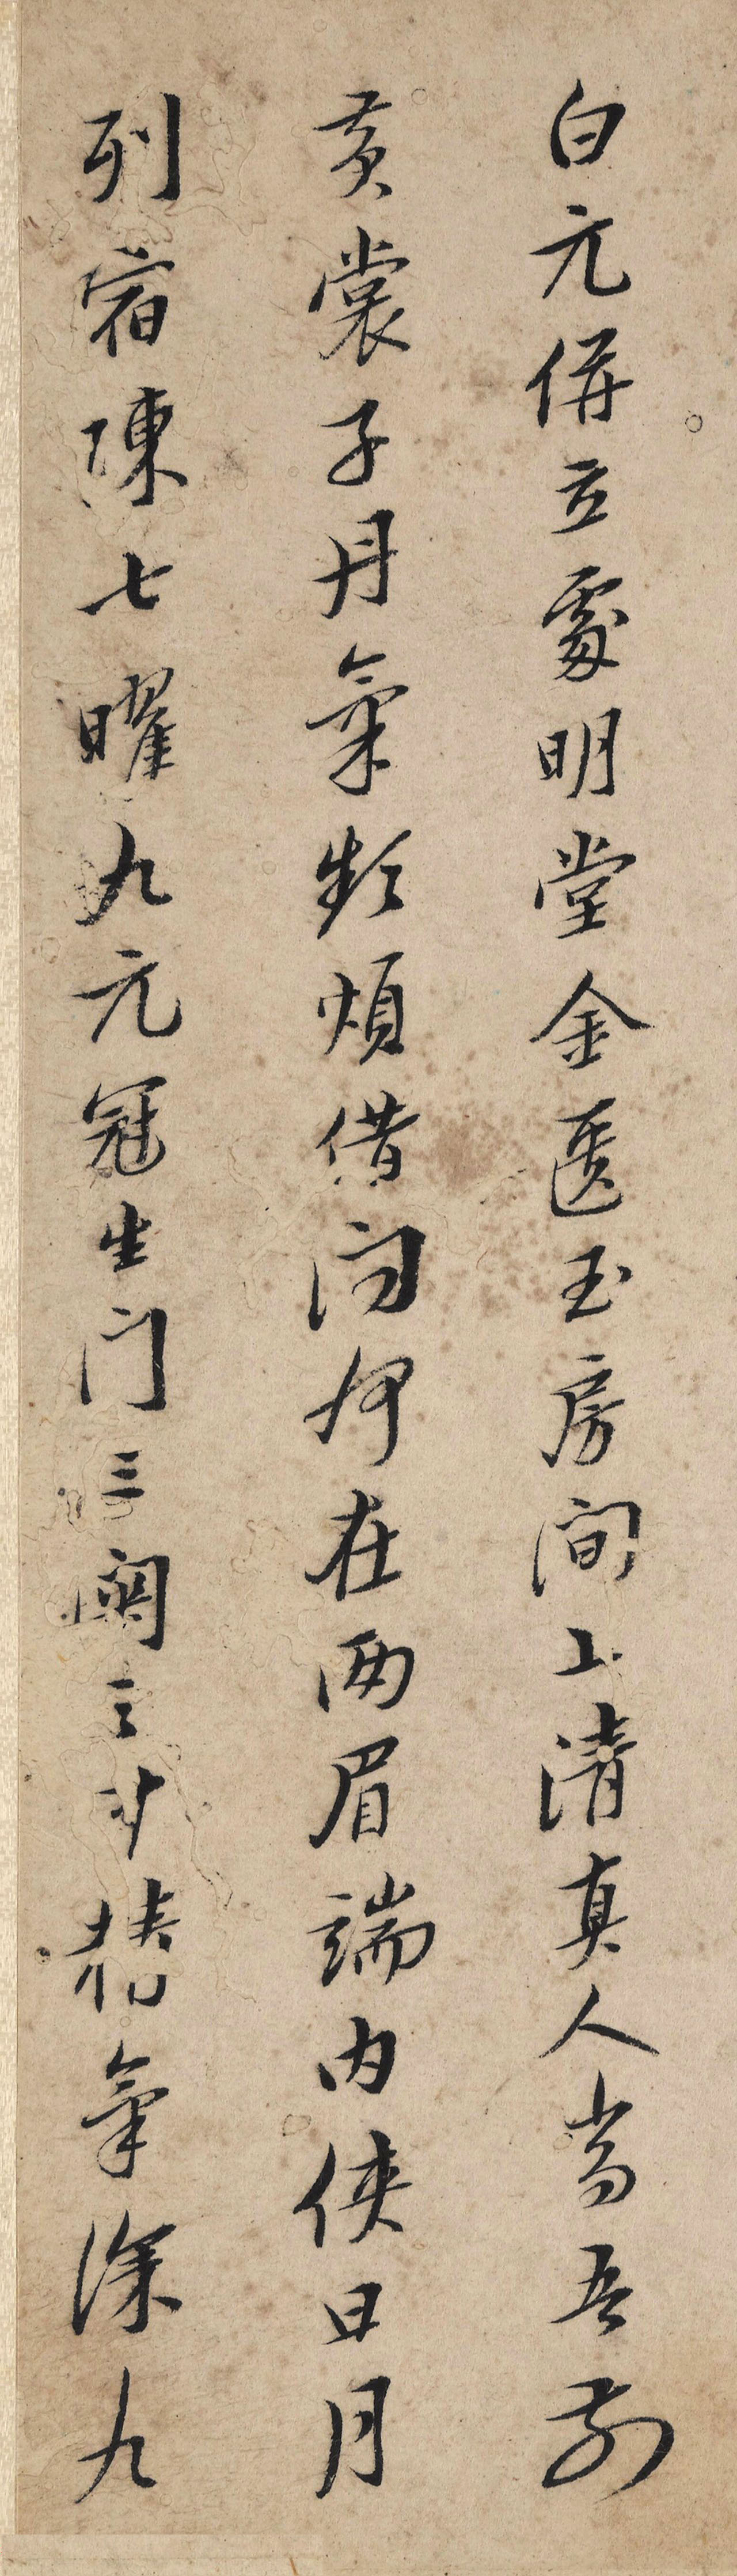 白元併立處明堂金匱玉房間上清真人當吾前
黃裳子丹氣數煩借問何在兩眉端內俠日月
列宿陳七曜九元冠生門三關之中精氣深九